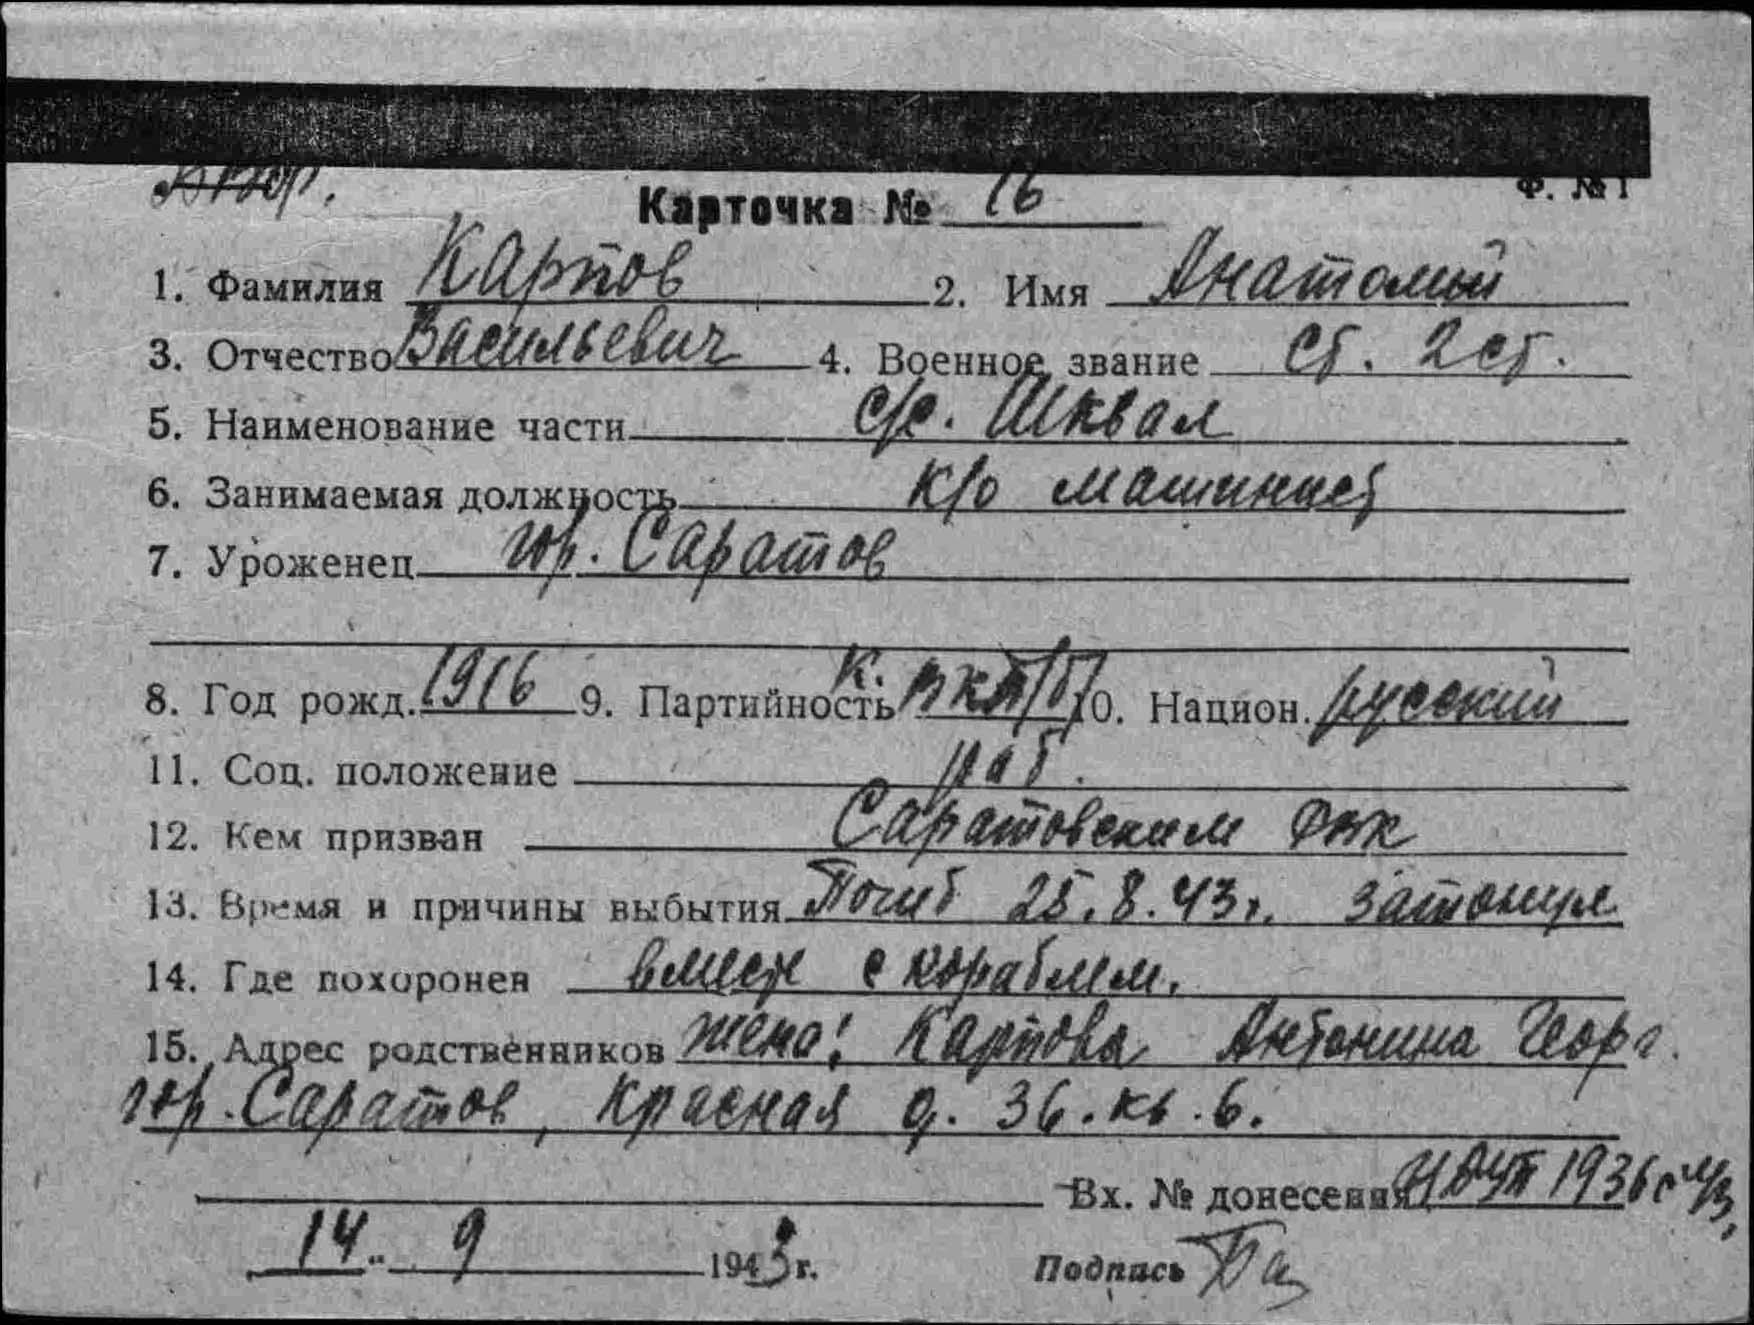 Карточка № 16
Ф. № 1
1. Фамилия Карпов 2. Имя Анатолий
3. Отчество Васильевич 4. Военное звание ст. 2 ст.
5. Наименование части Шквал
6. Занимаемая должность к/о машинист
7. Уроженец гор. Саратов
8. Год рожд. 1916 9. Партийность К. ВКП/б/ 10. Национ. русский
11. Соц. положение раб.
12. Кем призван Саратовским РВК
13. Время и причины выбытия Погиб 25.8.43г. затонул
14. Где похоронен вместе с кораблем.
15. Адрес родственников жена: Карпова Антонина Георг.
гор. Саратов, Красная д. 36. кв. 6.
Вх. № донесения 1936
14. 9 1943 г.
Подпись